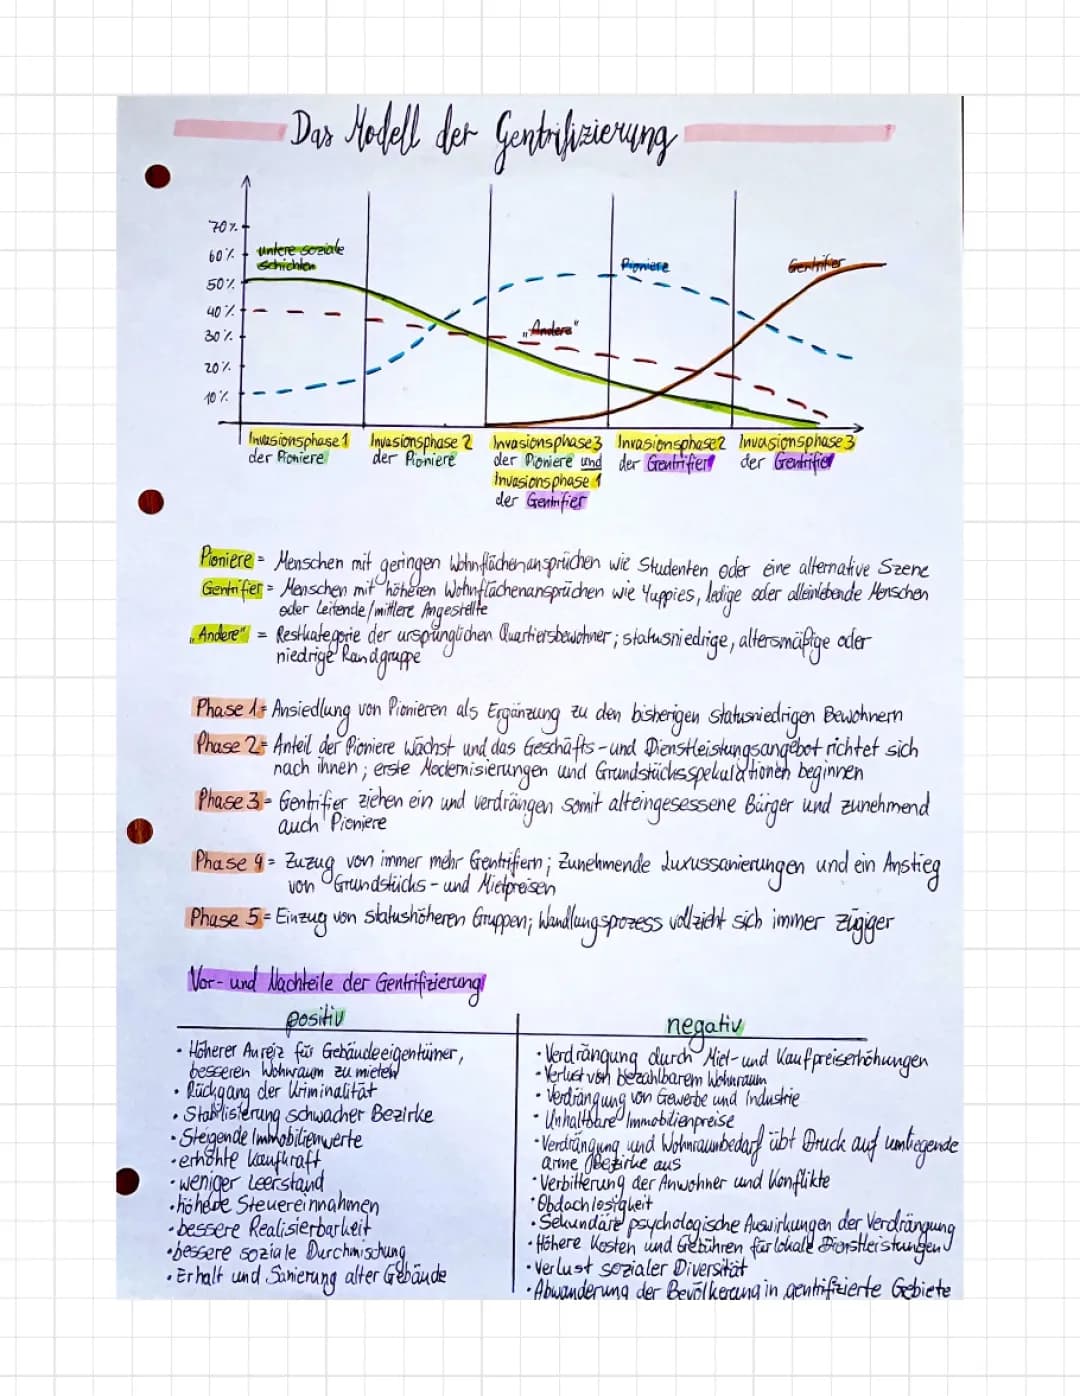 Das Modell der Gentrifizierung
70%
60%
50%
40%
30%
20%
10%
untere soziale
Schichten
"Andere"
Pioniere
Gentrifier
Invasionsphase 1
der Pioniere
Invasionsphase 2
der Pioniere
Invasionsphase 3
der Pioniere und
Invasionsphase 1
der Gentrifier
Invasionsphase 2
der Gentrifier
Invasionsphase 3
der Gentrifier
Pioniere = Menschen mit geringen Wohnflächenansprüchen wie Studenten oder eine alternative Szene
Gentrifier = Menschen mit höheren Wohnflächenansprüchen wie Yuppies, ledige oder alleinlebende Menschen
oder Leitende/mittlere Angestellte
"Andere" = Restkategorie der ursprünglichen Quartiersbewohner; statusniedrige, altersmäßige oder
niedrige Randgruppe
Phase 1 = Ansiedlung von Pionieren als Ergänzung zu den bisherigen statusniedrigen Bewohnern
Phase 2 = Anteil der Pioniere wächst und das Geschäfts- und Dienstleistungsangebot richtet sich
nach ihnen; erste Modernisierungen und Grundstücksspekulationen beginnen
Phase 3 = Gentrifier ziehen ein und verdrängen somit alteingesessene Bürger und zunehmend
auch Pioniere
Phase 4 = Zuzug von immer mehr Gentrifiern; Zunehmende Luxussanierungen und ein Anstieg
von Grundstücks- und Mietpreisen
Phase 5 = Einzug von statushöheren Gruppen; Wandlungsprozess vollzieht sich immer zügiger
Vor- und Nachteile der Gentrifizierung
positiv
• Höherer Anreiz für Gebäudeeigentümer,
besseren Wohnraum zu mieten
• Rückgang der Kriminalität
• Stabilisierung schwacher Bezirke
• Steigende Immobilienwerte
• erhöhte Kaufkraft
• weniger Leerstand
• höhere Steuereinnahmen
• bessere Realisierbarkeit
• bessere soziale Durchmischung
• Erhalt und Sanierung alter Gebäude
negativ
• Verdrängung durch Miet- und Kaufpreiserhöhungen
• Verlust von bezahlbarem Wohnraum
• Verdrängung von Gewerbe und Industrie
• Unhaltbare Immobilienpreise
• Verdrängung und Wohnraumbedarf übt Druck auf umliegende
arme Bezirke aus
• Verbitterung der Anwohner und Konflikte
• Obdachlosigkeit
• Sekundäre psychologische Auswirkungen der Verdrängung
• Höhere Kosten und Gebühren für lokale Dienstleistungen
• Verlust sozialer Diversität
• Abwanderung der Bevölkerung in gentrifizierte Gebiete